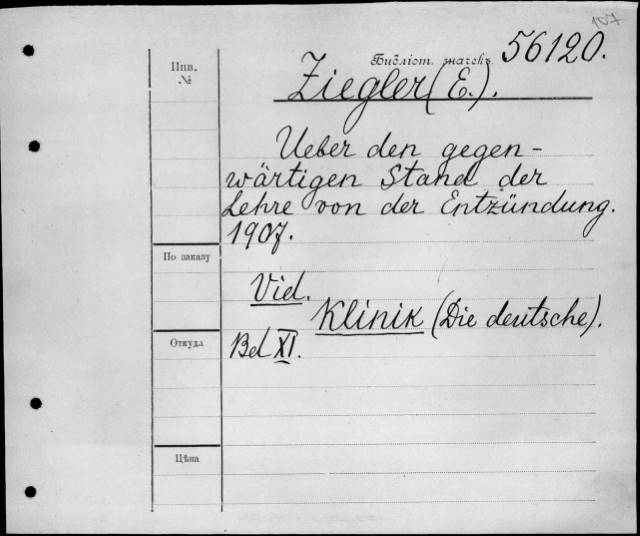 107
Библіот. значекъ 56120.
Инв.
№
Ziegler (E.).
Ueber den gegen-
wärtigen Stand der
Lehre von der Entzündung.
1907.
По заказу
Vid.
Klinik (Die deutsche).
Откуда
Bd XI.
Цѣна